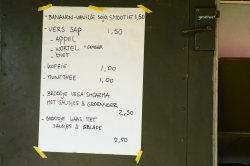 - BANANEN-VANILLE SOJA SMOOTIE 1,50
- VERS SAP 1,50
- APPEL
- WORTEL + GEMBER
- BIET
- KOFFIE 1,00
- MUNTTHEE 1,00
- BROODJE VEGA SHOARMA
MET SAUSJES & GROENVOER
2,50
- BROODJE KAAS MET
SAUSJES & SALADE
2,50